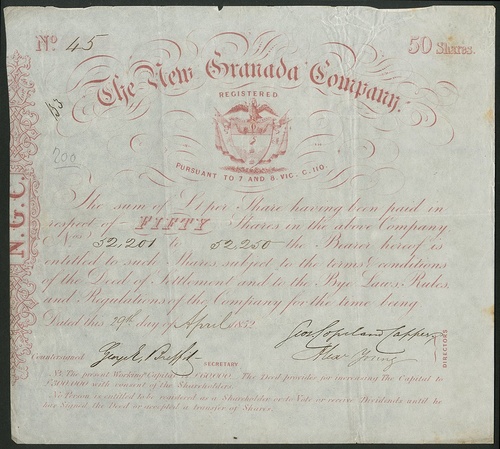 No. 45
50 Shares.
The New Granada Company.
REGISTERED
PURSUANT TO 7 AND 8. VIC. C. 110.
200
N.G.C.
The sum of £1 per Share having been paid in
respect of FIFTY Shares in the above Company
Nos. 52,201 to 52,250 the Bearer hereof is
entitled to such Shares, subject to the terms & conditions
of the Deed of Settlement and to the Bye Laws, Rules
and Regulations of the Company for the time being
Dated this 29th day of April 1852
Geo. Copeland Capper
Alexr Young
DIRECTORS
Countersigned
SECRETARY
The present Working Capital
The Deed provides for increasing The Capital to
with consent of the Shareholders.
No Person is entitled to be considered as a Shareholder or to Vote or receive Dividends until he
has Signed the Deed or accepted a transfer of Shares.